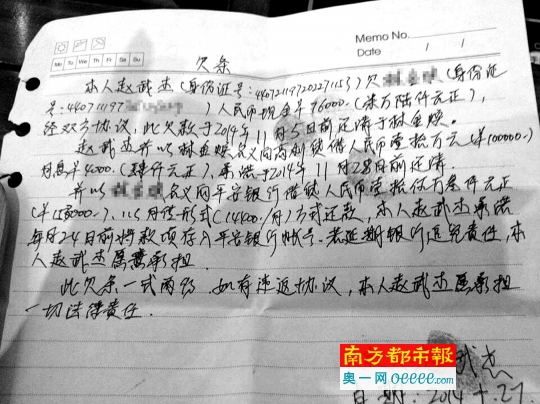 Memo No.
Date / /
Mo Tu We Th Fr Sa Su
欠条
本人赵武杰(身份证号:440721197202271153)欠(身份证
号:44071197 )人民币现金￥76000.(柒万陆仟元正),
经双方协议,此欠款于2014年11月5日前还清于林金赎.
赵武杰并以林金赎名义向高利贷借人民币壹拾万元(￥100000.)
月息￥4000.(肆仟元正),承诺于2014年11月28日前还清.
并以 名义向平安银行借贷人民币壹拾伍万叁仟元正
(￥153000.),以月供形式(14400/月)方式还款,本人赵武杰承诺
每月24日前将款项存入平安银行帐号.若延期银行追究责任,本
人赵武杰愿意承担.
此欠条一式两份.如有违返协议,本人赵武杰愿承担
一切法律责任.
南方都市報
奥一网 oeeee.com
武杰
日期:2014.